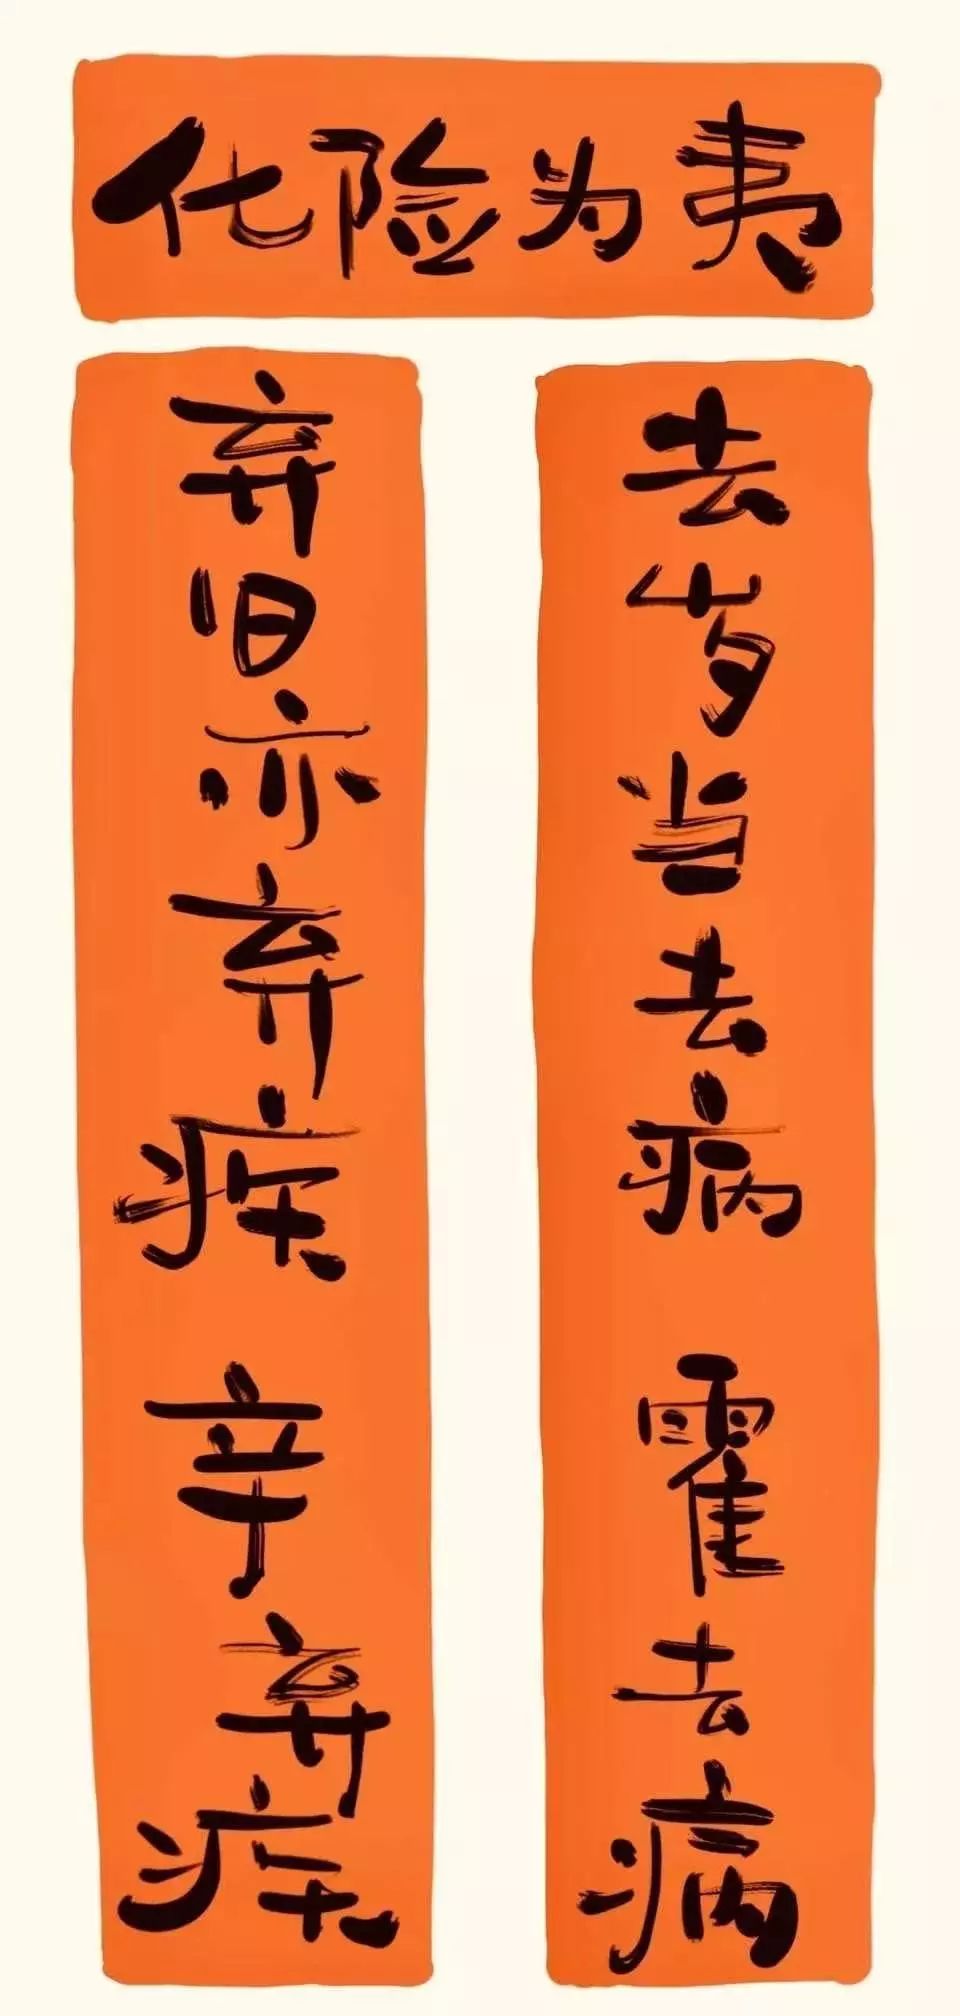 化险为夷
去岁当去病 霍去病
弃旧亦弃疾 辛弃疾